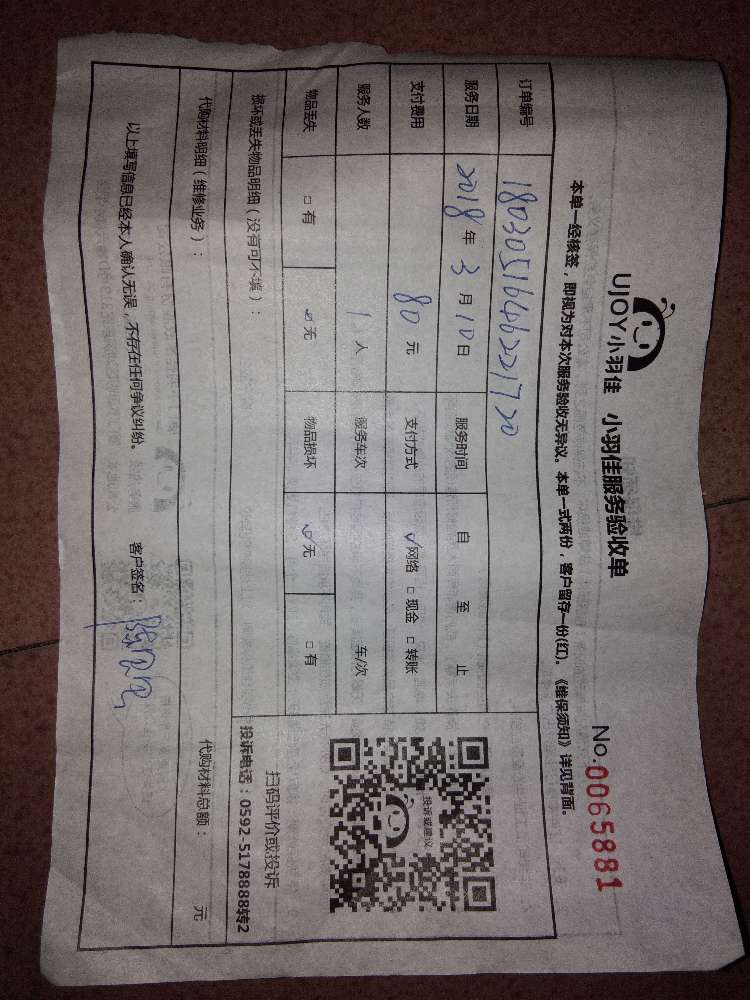 UJOY小羽佳 小羽佳服务验收单
No.0065881
本单一经核签，即视为对本次服务验收无异议。本单一式两份，客户留存一份(红)。《维保须知》详见背面。
订单编号 18030516462221720
服务日期 2018年3月10日 服务时间 自 至 止
支付费用 80元 支付方式 ✓网络 □现金 □转账
服务人数 1人 服务车次 车/次
物品丢失 □有 ✓无 物品损坏 ✓无 □有
损坏或丢失物品明细（没有可不填）：
投诉或建议
扫码评价或投诉
投诉电话：0592-5178888转2
代购材料明细（维修业务）： 代购材料总额： 元
以上填写信息已经本人确认无误，不存在任何争议纠纷。 客户签名：